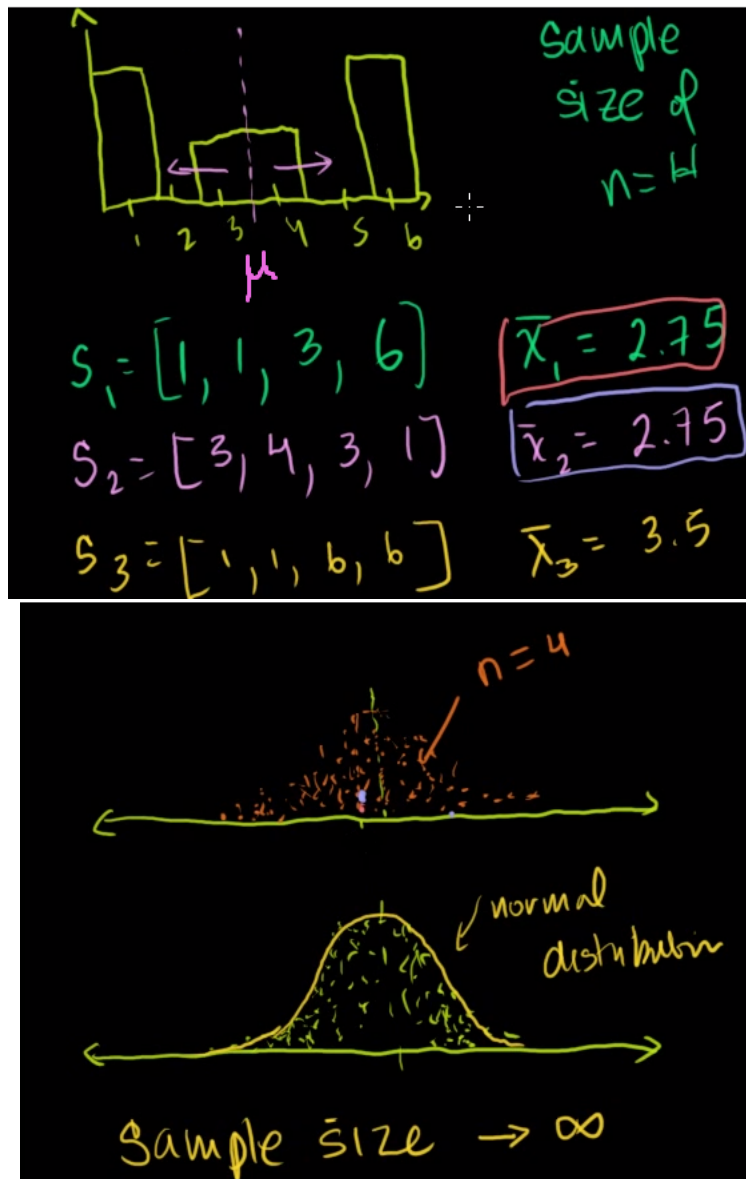 Sample
size of
n = 4
1 2 3 4 5 6
μ
S₁ = [1, 1, 3, 6] x̄₁ = 2.75
S₂ = [3, 4, 3, 1] x̄₂ = 2.75
S₃ = [1, 1, 6, 6] x̄₃ = 3.5
n = 4
normal
distribution
Sample size → ∞